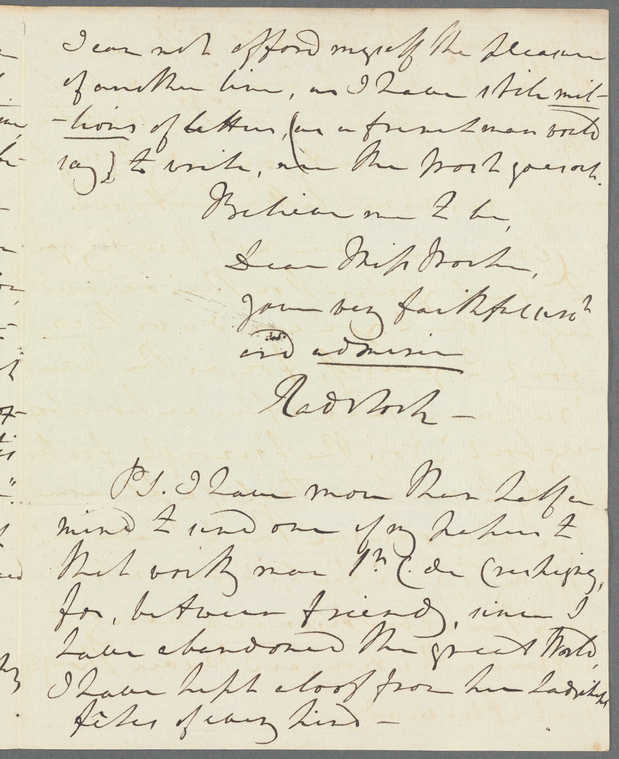 I can not afford myself the pleasure
of another line, as I have still mil-
-lions of letters, (as a frenchman would
say) to write, ere the Post goes out.
Believe me to be,
Dear Miss Porter,
your very faithful serv.t
and admirer
Radstock —
PS. I have more than half a
mind to send one of my papers to
that worthy man S.r C. de Crespigny,
for, between friends, since I
have abandoned the great World,
I have kept aloof from her Ladyship's
fêtes of every kind —